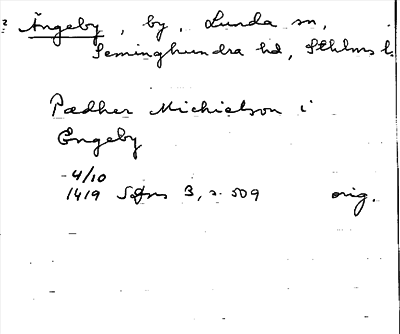 Ängeby, by, Lunda sn,
Seminghundra hd, Sthlms l.
Pædher Michielson i
Engeby
4/10
1419 SDns 3, s. 509 orig.